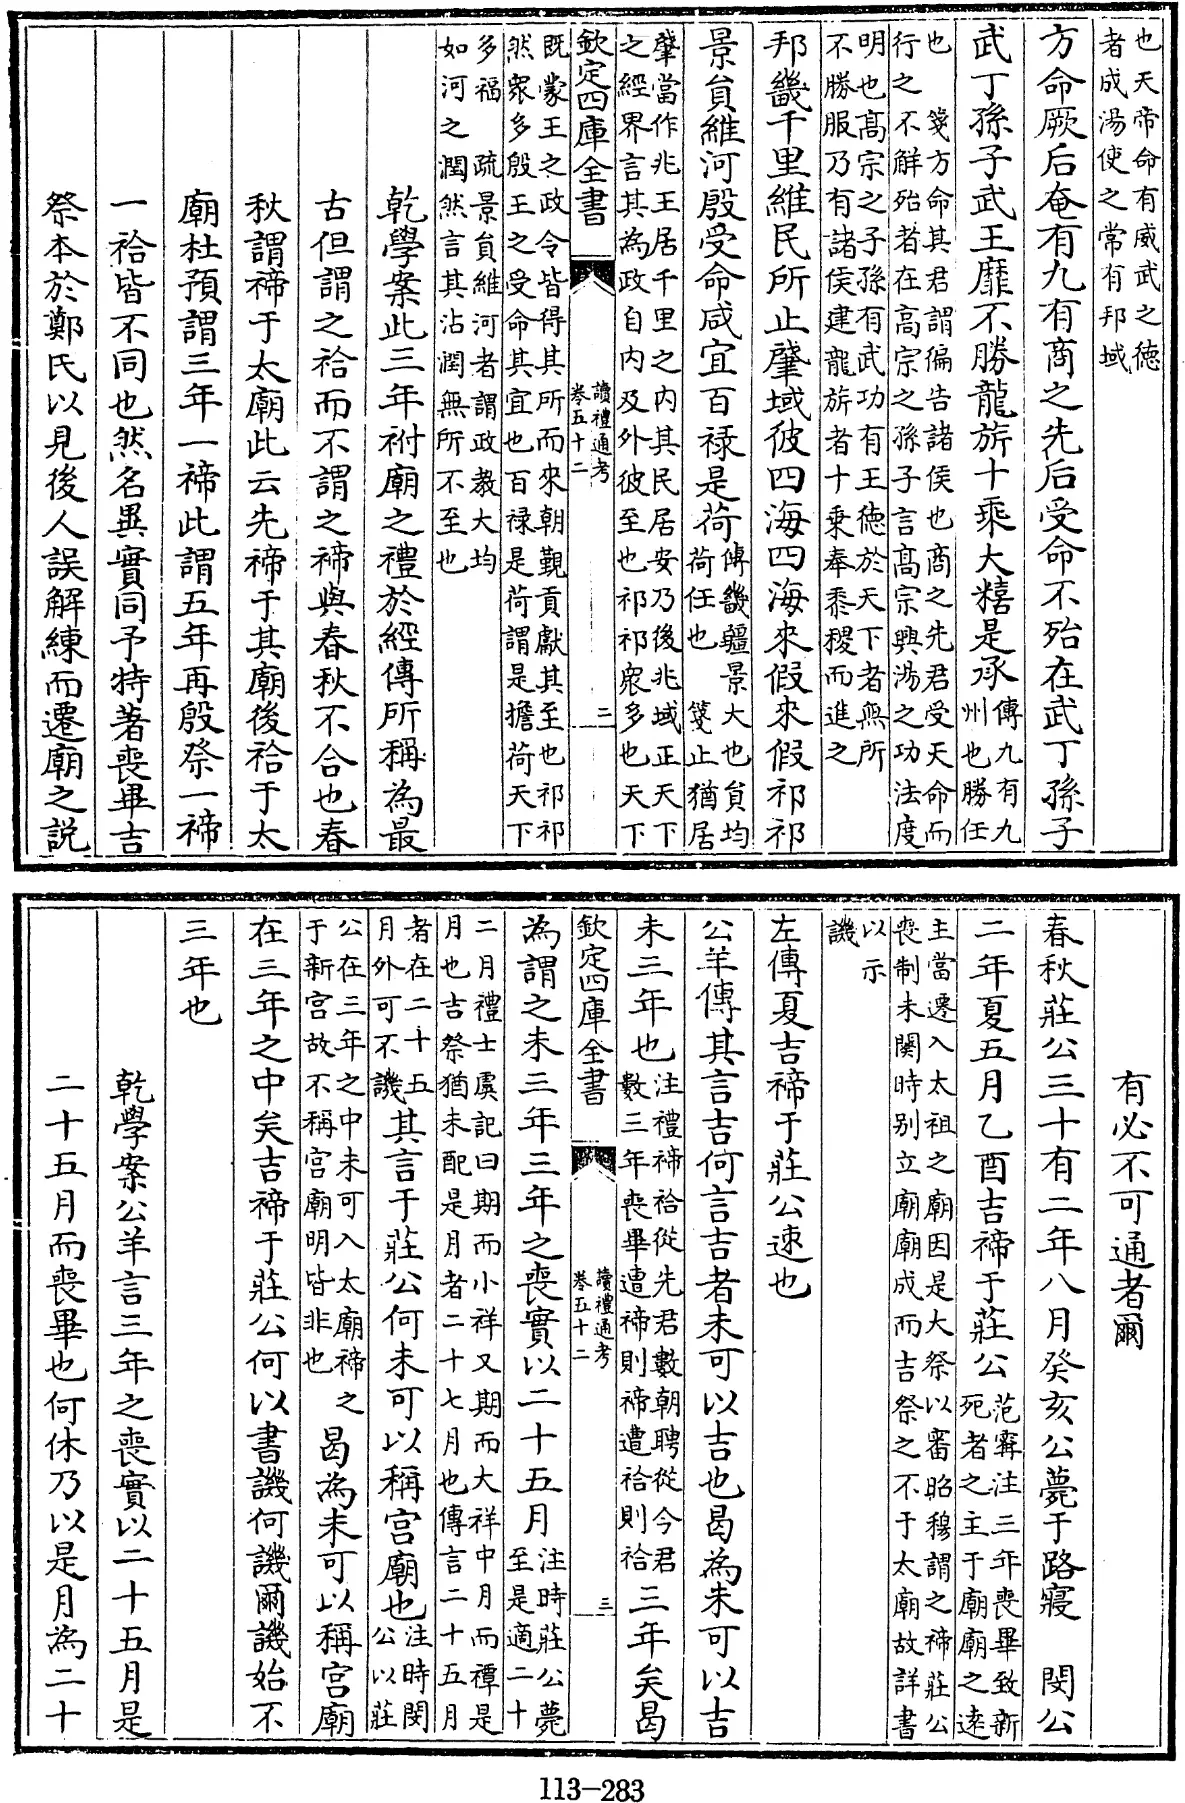 也天帝命有威武之德
者成湯使之常有邦域
方命厥后奄有九有商之先后受命不殆在武丁孫子
武丁孫子武王靡不勝龍旂十乘大糦是承傳九有九
州也勝任
也　箋方命其君謂徧告諸侯也商之先君受天命而
行之不解殆者在高宗之孫子言高宗興湯之功法度
明也高宗之子孫有武功有王德於天下者無所
不勝服乃有諸侯建龍旂者十乘奉黍稷而進之
邦畿千里維民所止肇域彼四海四海來假來假祁祁
景員維河殷受命咸宜百祿是荷傳畿疆景大也員均
荷任也　箋止猶居
肇當作兆王居千里之内其民居安乃後兆域正天下
之經界言其為政自内及外彼至也祁祁衆多也天下
欽定四庫全書
讀禮通考
卷五十二
二
既蒙王之政令皆得其所而來朝覲貢獻其至也祁祁
然衆多殷王之受命其宜也百祿是荷謂是擔荷天下
多福　疏景員維河者謂政教大均
如河之潤然言其沾潤無所不至也
乾學案此三年祔廟之禮於經傳所稱為最
古但謂之祫而不謂之禘與春秋不合也春
秋謂禘于太廟此云先禘于其廟後祫于太
廟杜預謂三年一禘此謂五年再殷祭一禘
一祫皆不同也然名異實同予特著喪畢吉
祭本於鄭氏以見後人誤解練而遷廟之説
有必不可通者爾
春秋莊公三十有二年八月癸亥公薨于路寢　閔公
二年夏五月乙酉吉禘于莊公范甯注三年喪畢致新
死者之主于廟廟之遠
主當遷入太祖之廟因是大祭以審昭穆謂之禘莊公
喪制未闋時别立廟廟成而吉祭之不于太廟故詳書
以示
譏
左傳夏吉禘于莊公速也
公羊傳其言吉何言吉者未可以吉也曷為未可以吉
未三年也注禮禘祫從先君數朝聘從今君
數三年喪畢遭禘則禘遭祫則祫三年矣曷
欽定四庫全書
讀禮通考
卷五十二
三
為謂之未三年三年之喪實以二十五月注時莊公薨
至是適二十
二月禮士虞記曰期而小祥又期而大祥中月而禫是
月也吉祭猶未配是月者二十七月也傳言二十五月
者在二十五
月外可不譏其言于莊公何未可以稱宮廟也注時閔
公以莊
公在三年之中未可入太廟禘之
于新宮故不稱宮廟明皆非也曷為未可以稱宮廟
在三年之中矣吉禘于莊公何以書譏何譏爾譏始不
三年也
乾學案公羊言三年之喪實以二十五月是
二十五月而喪畢也何休乃以是月為二十
113-283